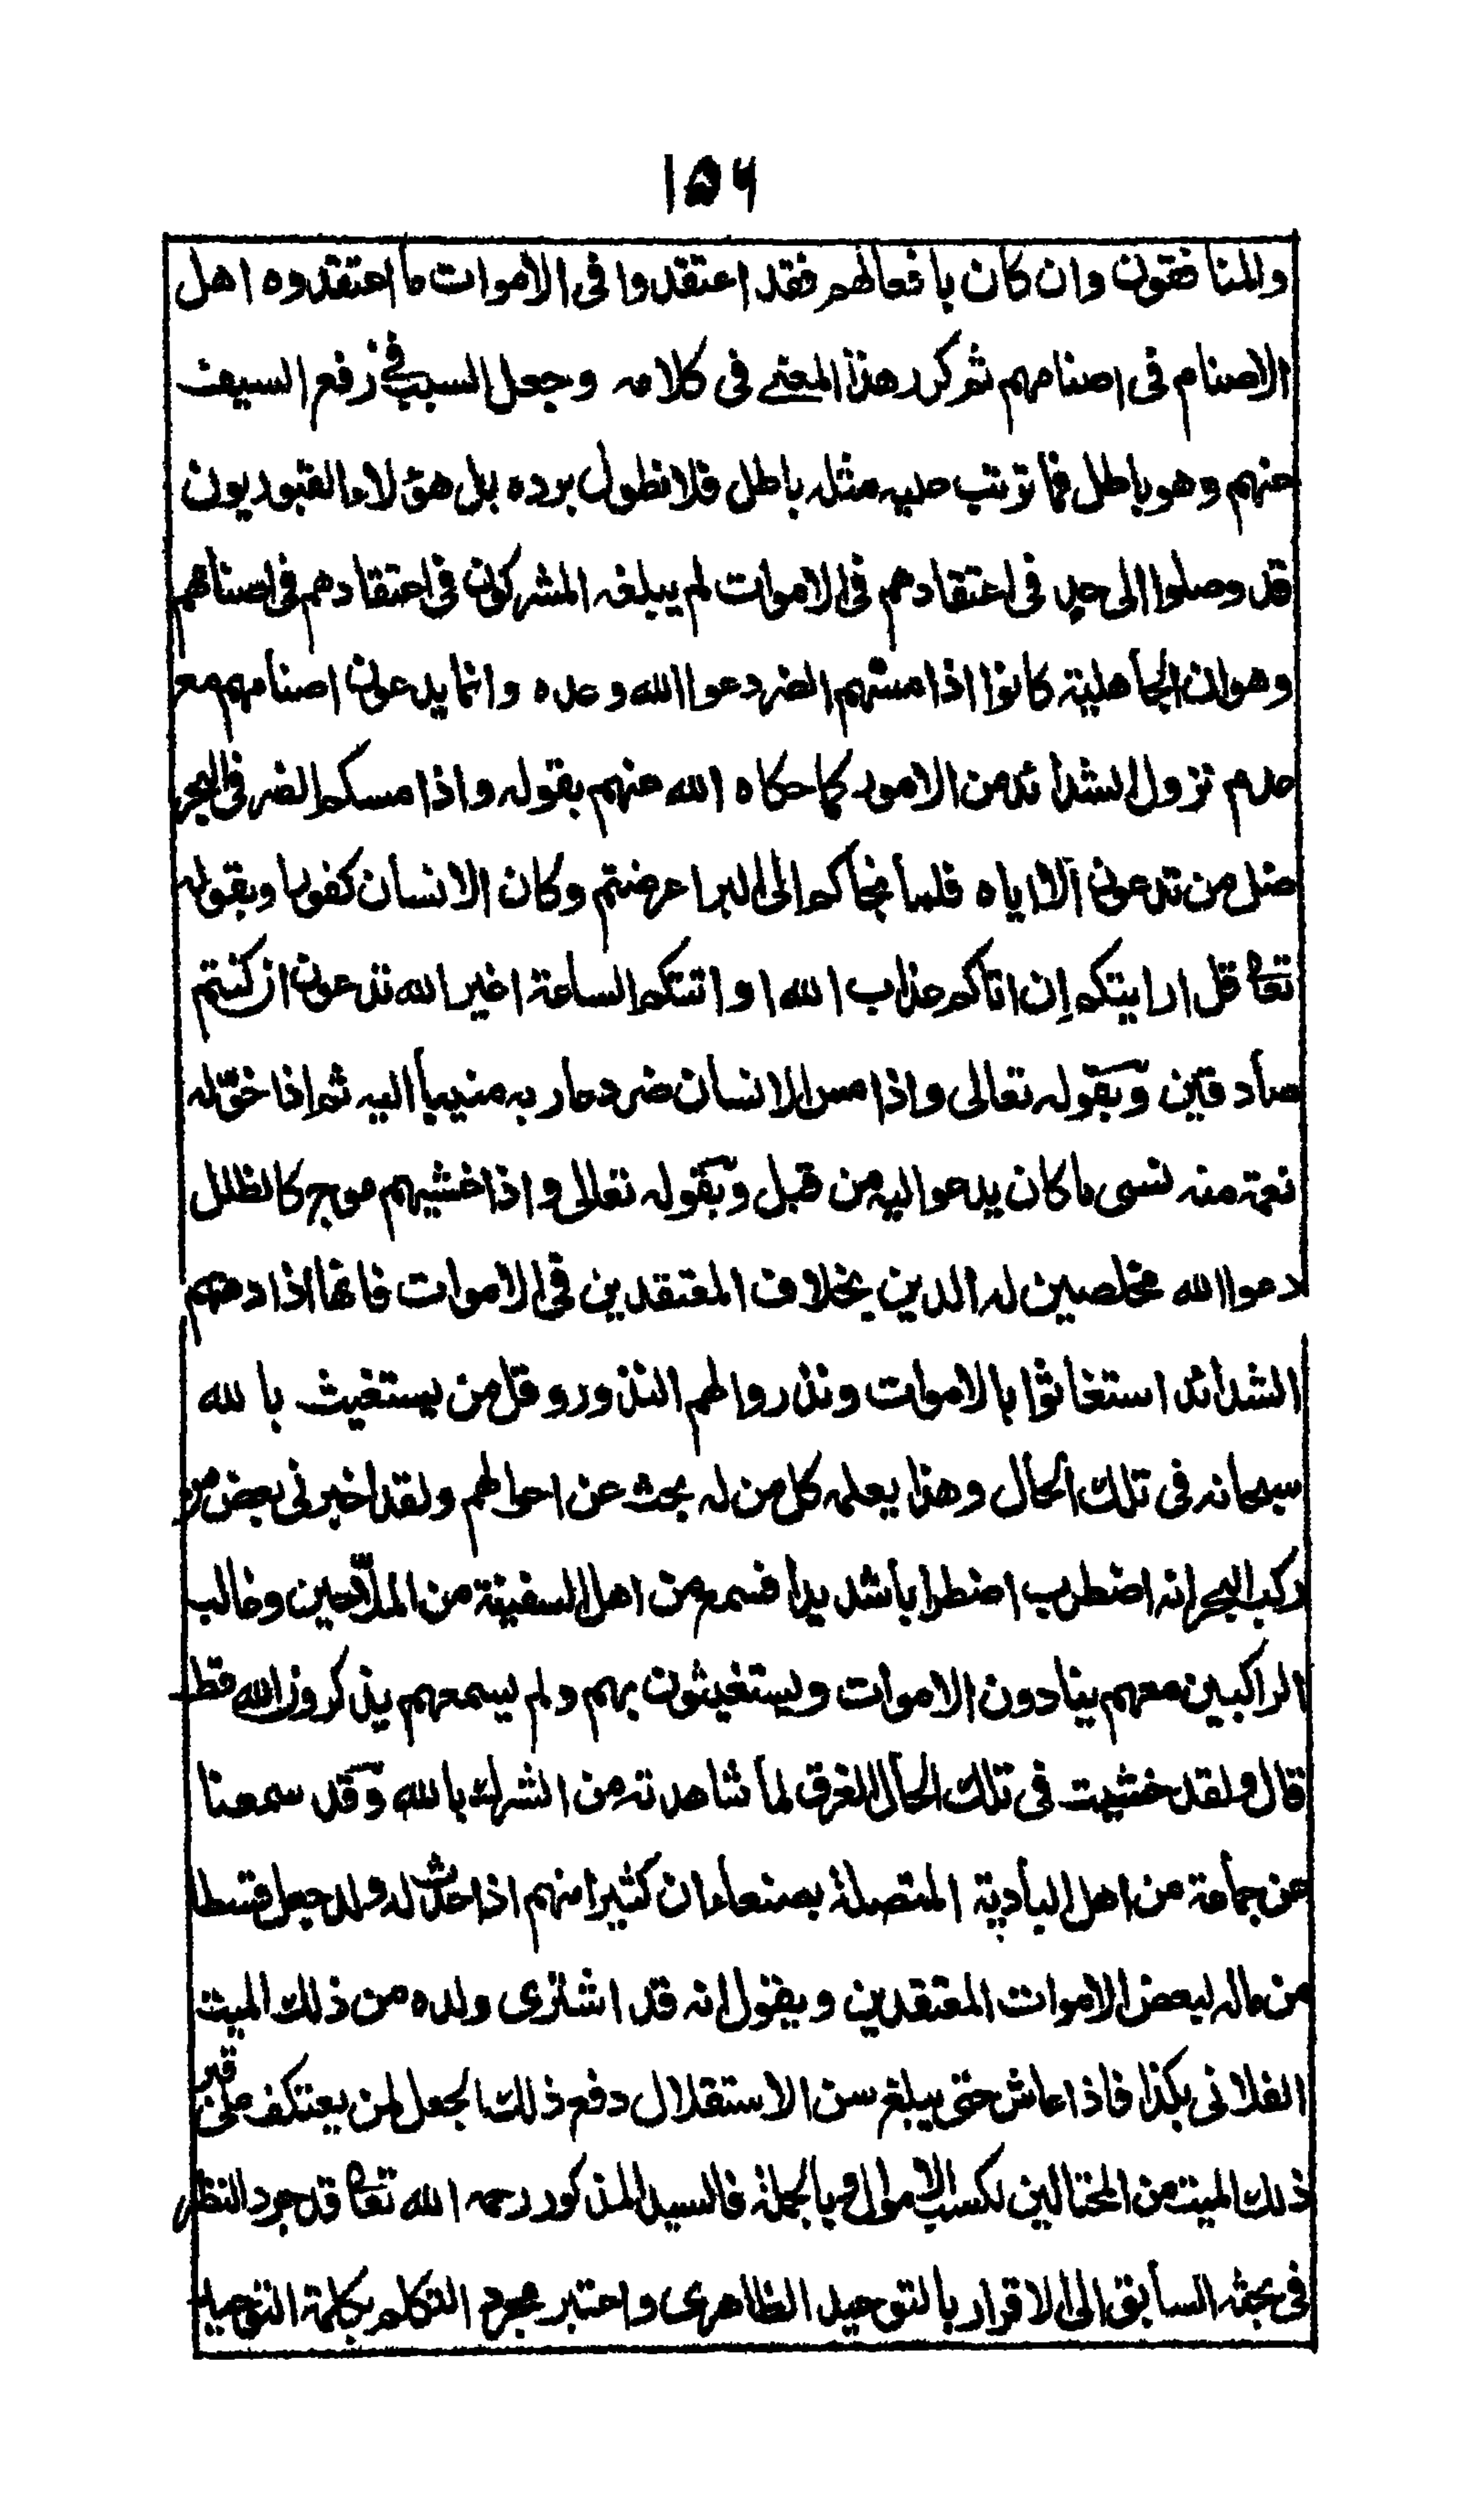 ١٥٦
والمنافقون وان كان بافعالهم فقد اعتقدوا فى الاموات ما اعتقدوه اهل
الاصنام فى اصنامهم ثم كرر هذا المعنى فى كلامه وجعل السبب فى رفع السيف
عنهم وهو باطل فما ترتب عليه مثله باطل فلا نطول برده بل هؤلاء القبوريون
قد وصلوا الى حد فى اعتقادهم فى الاموات لم يبلغه المشركون فى اعتقادهم فى اصنامهم
وهو ان الجاهلية كانوا اذا مسهم الضر دعوا الله وحده وانما يدعون اصنامهم مع
عدم نزول الشدائد من الامور كما حكاه الله عنهم بقوله واذا مسكم الضر فى البحر
ضل من تدعون الا اياه فلما نجاكم الى البر اعرضتم وكان الانسان كفورا وبقوله
تعا قل ارايتكم إن اتاكم عذاب الله او اتتكم الساعة اغير الله تدعون ان كنتم
صادقين وبقوله تعالى واذا مس الانسان ضر دعا ربه منيبا اليه ثم اذا خوّله
نعمة منه نسى ما كان يدعو اليه من قبل وبقوله تعالى واذا غشيهم موج كالظلل
دعوا الله مخلصين له الدين بخلاف المعتقدين فى الاموات فانها اذا دهمهم
الشدائد استغاثوا بالاموات ونذروا لهم النذور وقل من يستغيث بالله
سبحانه فى تلك الحال وهذا يعلمه كل من له بحث عن احوالهم ولقد اخبرنى بعض من
ركب البحر انه اضطرب اضطرابا شديدا فسمع من اهل السفينة من الملّاحين وغالب
الراكبين معهم ينادون الاموات ويستغيثون بهم ولم يسمعهم يذكرون الله قط
قال ولقد خشيت فى تلك الحال الغرق لما شاهدته من الشرك بالله وقد سمعنا
عن جماعة من اهل البادية المتصلة بصنعاء ان كثيرا منهم اذا حدث له ولد جعل قسطا
من ماله لبعض الاموات المعتقدين ويقول انه قد اشترى ولده من ذلك الميت
الفلانى بكذا فاذا عاش حتى يبلغ سن الاستقلال دفع ذلك الجعل لمن يعتكف على قبر
ذلك الميت من المحتالين لكسب الاموال وبالجملة فالسيد المذكور رحمه الله تعا قد جرد النظر
فى بحثه السابق الى الاقرار بالتوحيد الظاهرى واعتبر مجرد التكلم بكلمة التوحيد